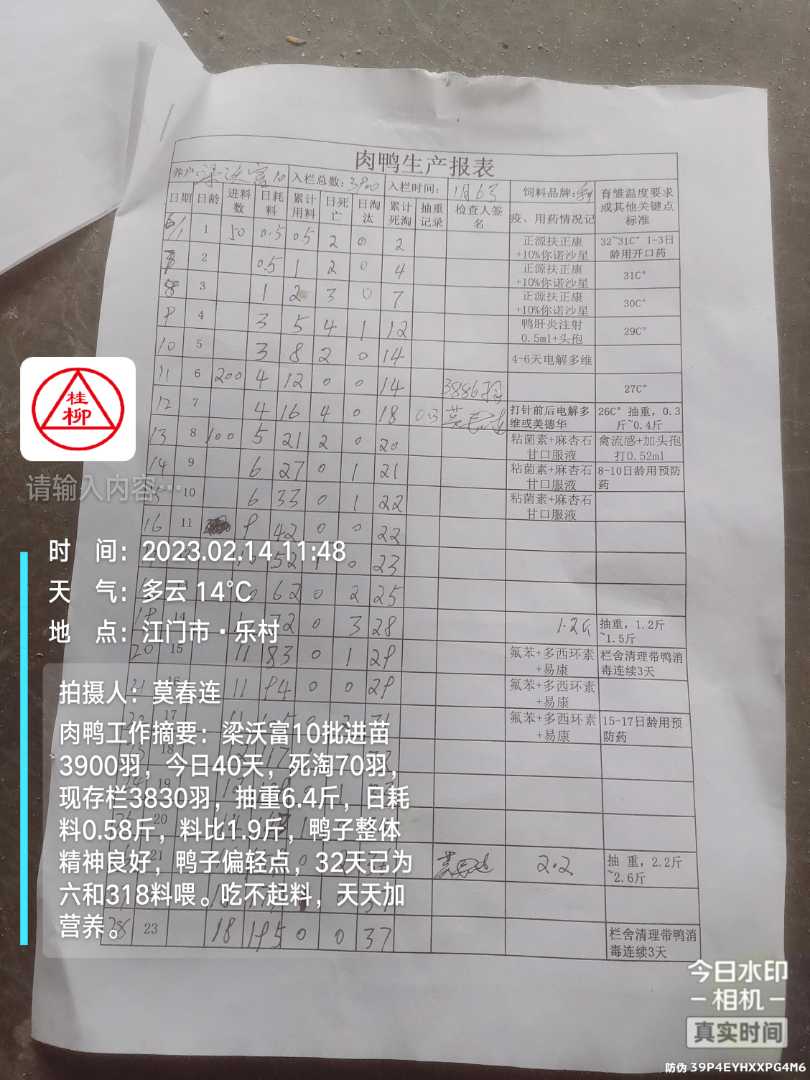 肉鸭生产报表
养户 梁沃富10 入栏总数:3900 入栏时间: 1月6号 饲料品牌:
日期 日龄 进料数 日耗料 累计用料 日死亡 日淘汰 累计死淘 抽重记录 检查人签名 疫、用药情况记 育雏温度要求或其他关键点标准
6/1 1 50 0.5 0.5 2 0 2 正源扶正康+10%你诺沙星 32~31C° 1-3日龄用开口药
7 2 0.5 1 2 0 4 正源扶正康+10%你诺沙星 31C°
8 3 1 2 3 0 7 正源扶正康+10%你诺沙星 30C°
9 4 3 5 4 1 12 鸭肝炎注射0.5ml+头孢 29C°
10 5 3 8 2 0 14 4-6天电解多维
11 6 200 4 12 0 0 14 3886 27C°
12 7 4 16 4 0 18 0.3 打针前后电解多维或美德华 26C° 抽重，0.3斤~0.4斤
13 8 100 5 21 2 0 20 粘菌素+麻杏石甘口服液 禽流感+加头孢打0.52ml
14 9 6 27 0 1 21 粘菌素+麻杏石甘口服液 8-10日龄用预防药
10 6 33 0 1 22 粘菌素+麻杏石甘口服液
16 11 9 42 0 0 22
52 1 0 23
62 0 2 25
72 0 3 28 1.2斤 抽重，1.2斤~1.5斤
20 15 11 83 0 1 29 氟苯+多西环素+易康 栏舍清理带鸭消毒连续3天
21 16 11 94 0 0 29 氟苯+多西环素+易康
17 氟苯+多西环素+易康 15-17日龄用预防药
18
19
20
21 2.2 抽 重，2.2斤~2.6斤
28 23 18 195 0 0 37 栏舍清理带鸭消毒连续3天
桂柳
请输入内容…
时 间：2023.02.14 11:48
天 气：多云 14°C
地 点：江门市·乐村
拍摄人：莫春连
肉鸭工作摘要：梁沃富10批进苗
3900羽，今日40天，死淘70羽，
现存栏3830羽，抽重6.4斤，日耗
料0.58斤，料比1.9斤，鸭子整体
精神良好，鸭子偏轻点，32天已为
六和318料喂。吃不起料，天天加
营养。
今日水印
相机
真实时间
防伪 39P4EYHXXPG4M6